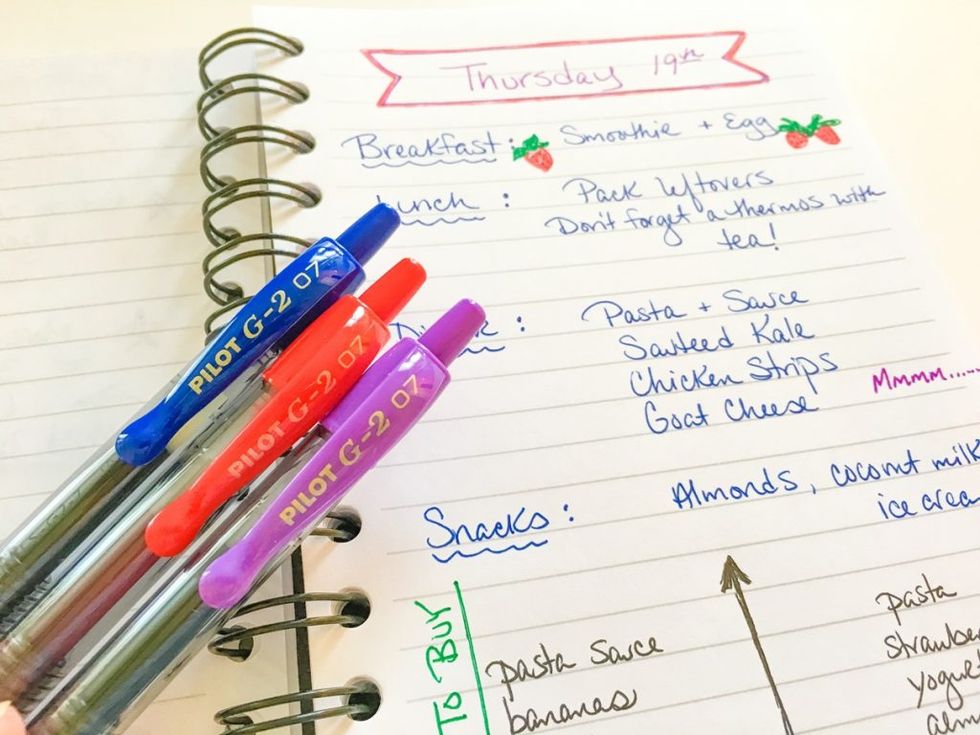 Thursday 19th
Breakfast: Smoothie + Egg
Lunch : Pack leftovers
Don't forget a thermos with
tea!
: Pasta + Sauce
Sauteed Kale
Chicken Strips
Goat Cheese
Mmmm.....
Snacks : Almonds, coconut milk
ice crea
TO BUY
pasta sauce
bananas
pasta
strawbe
yogu
alm
PILOT G-2 07
PILOT G-2 07
PILOT G-2 07